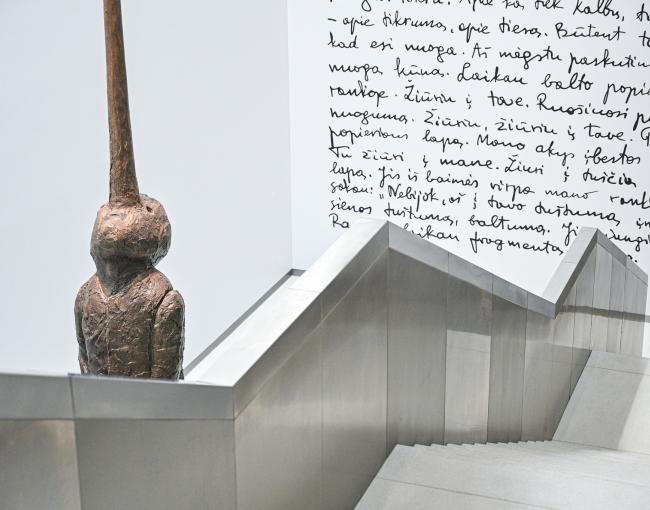 Apie ką tiek kalbu,
– apie tikrumą, apie tiesą. Būtent
kad esi nuoga. Aš mėgstu paskutin
nuogą kūną. Laikau balto popie
rankoje. Žiūriu į tave. Ruošiuosi
nuogumą. Žiūriu, žiūriu į tave.
popieriaus lapą. Mano akys įbestos
Tu žiūri į mane. Žiūri į tuščią
lapą. Jis iš baimės virpa mano rank
sakau: „Nebijok, aš į tavo tuštumą
sienos tuštumą, baltumą. Jis
Ra ikau fragmentą